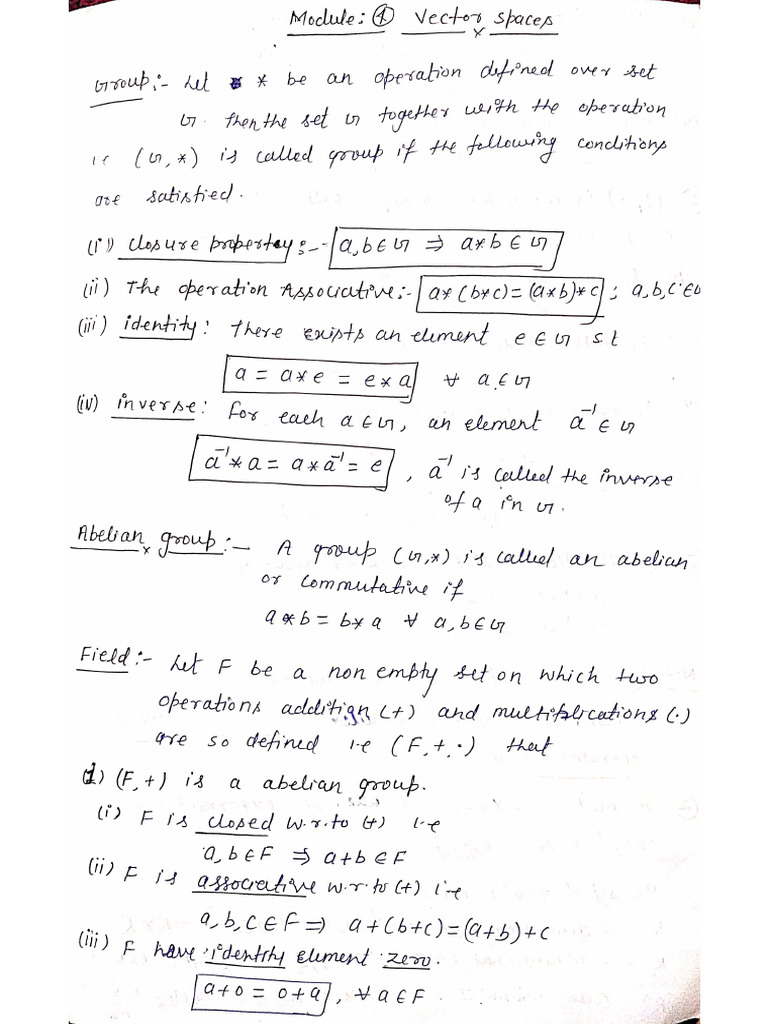 Module: ① Vector spaces
Group:- Let * be an operation defined over set
G. then the set G together with the operation
i.e (G, *) is called group if the following conditions
are satisfied.
(i) closure property:- a,b∈G ⇒ a*b∈G
(ii) The operation Associative:- a*(b*c)=(a*b)*c ; a,b,c∈G
(iii) identity: There exists an element e∈G s.t
a = a*e = e*a ∀ a∈G
(iv) inverse: For each a∈G, an element a⁻¹∈G
a⁻¹*a = a*a⁻¹ = e , a⁻¹ is called the inverse
of a in G.
Abelian group:- A group (G,*) is called an abelian
or commutative if
a*b = b*a ∀ a,b∈G
Field:- Let F be a non empty set on which two
operations addition (+) and multiplications (.)
are so defined i.e (F,+,.) that
(1) (F,+) is a abelian group.
(i) F is closed w.r.to (+) i.e
a,b∈F ⇒ a+b∈F
(ii) F is associative w.r.to (+) i.e
a,b,c∈F ⇒ a+(b+c)=(a+b)+c
(iii) F have identity element zero.
a+0 = 0+a , ∀ a∈F.